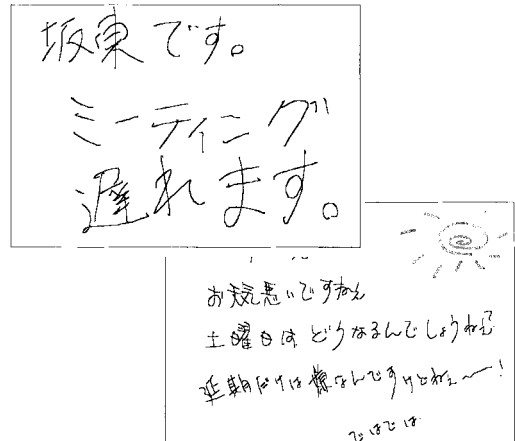 坂東です。
ミーティング
遅れます。
お天気悪いですねぇ
土曜日は どうなるんでしょうねぇ?
延期だけは嫌なんですけどねぇ〜!
ではでは